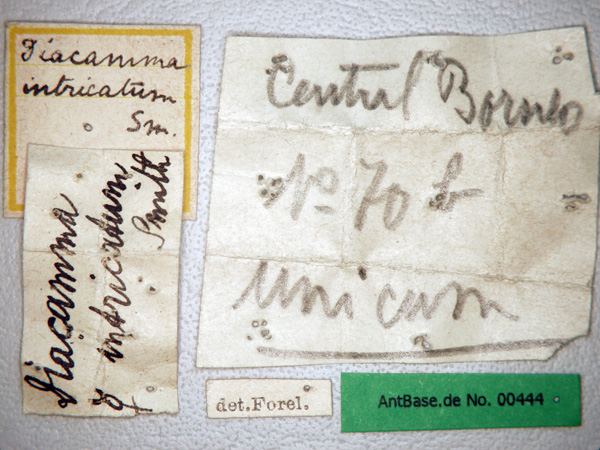 Diacamma
intricatum
Sm.
Diacamma
intricatum
Smith
Central Borneo
No 70 b
Unicum
det.Forel.
AntBase.de No. 00444